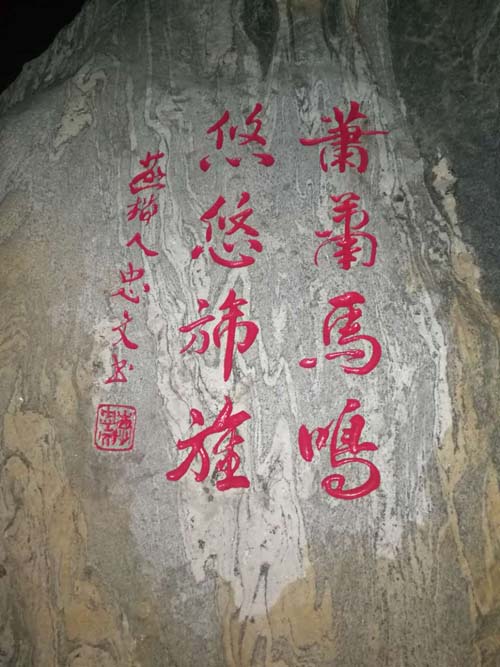 蕭蕭馬鳴
悠悠旆旌
燕人忠文书